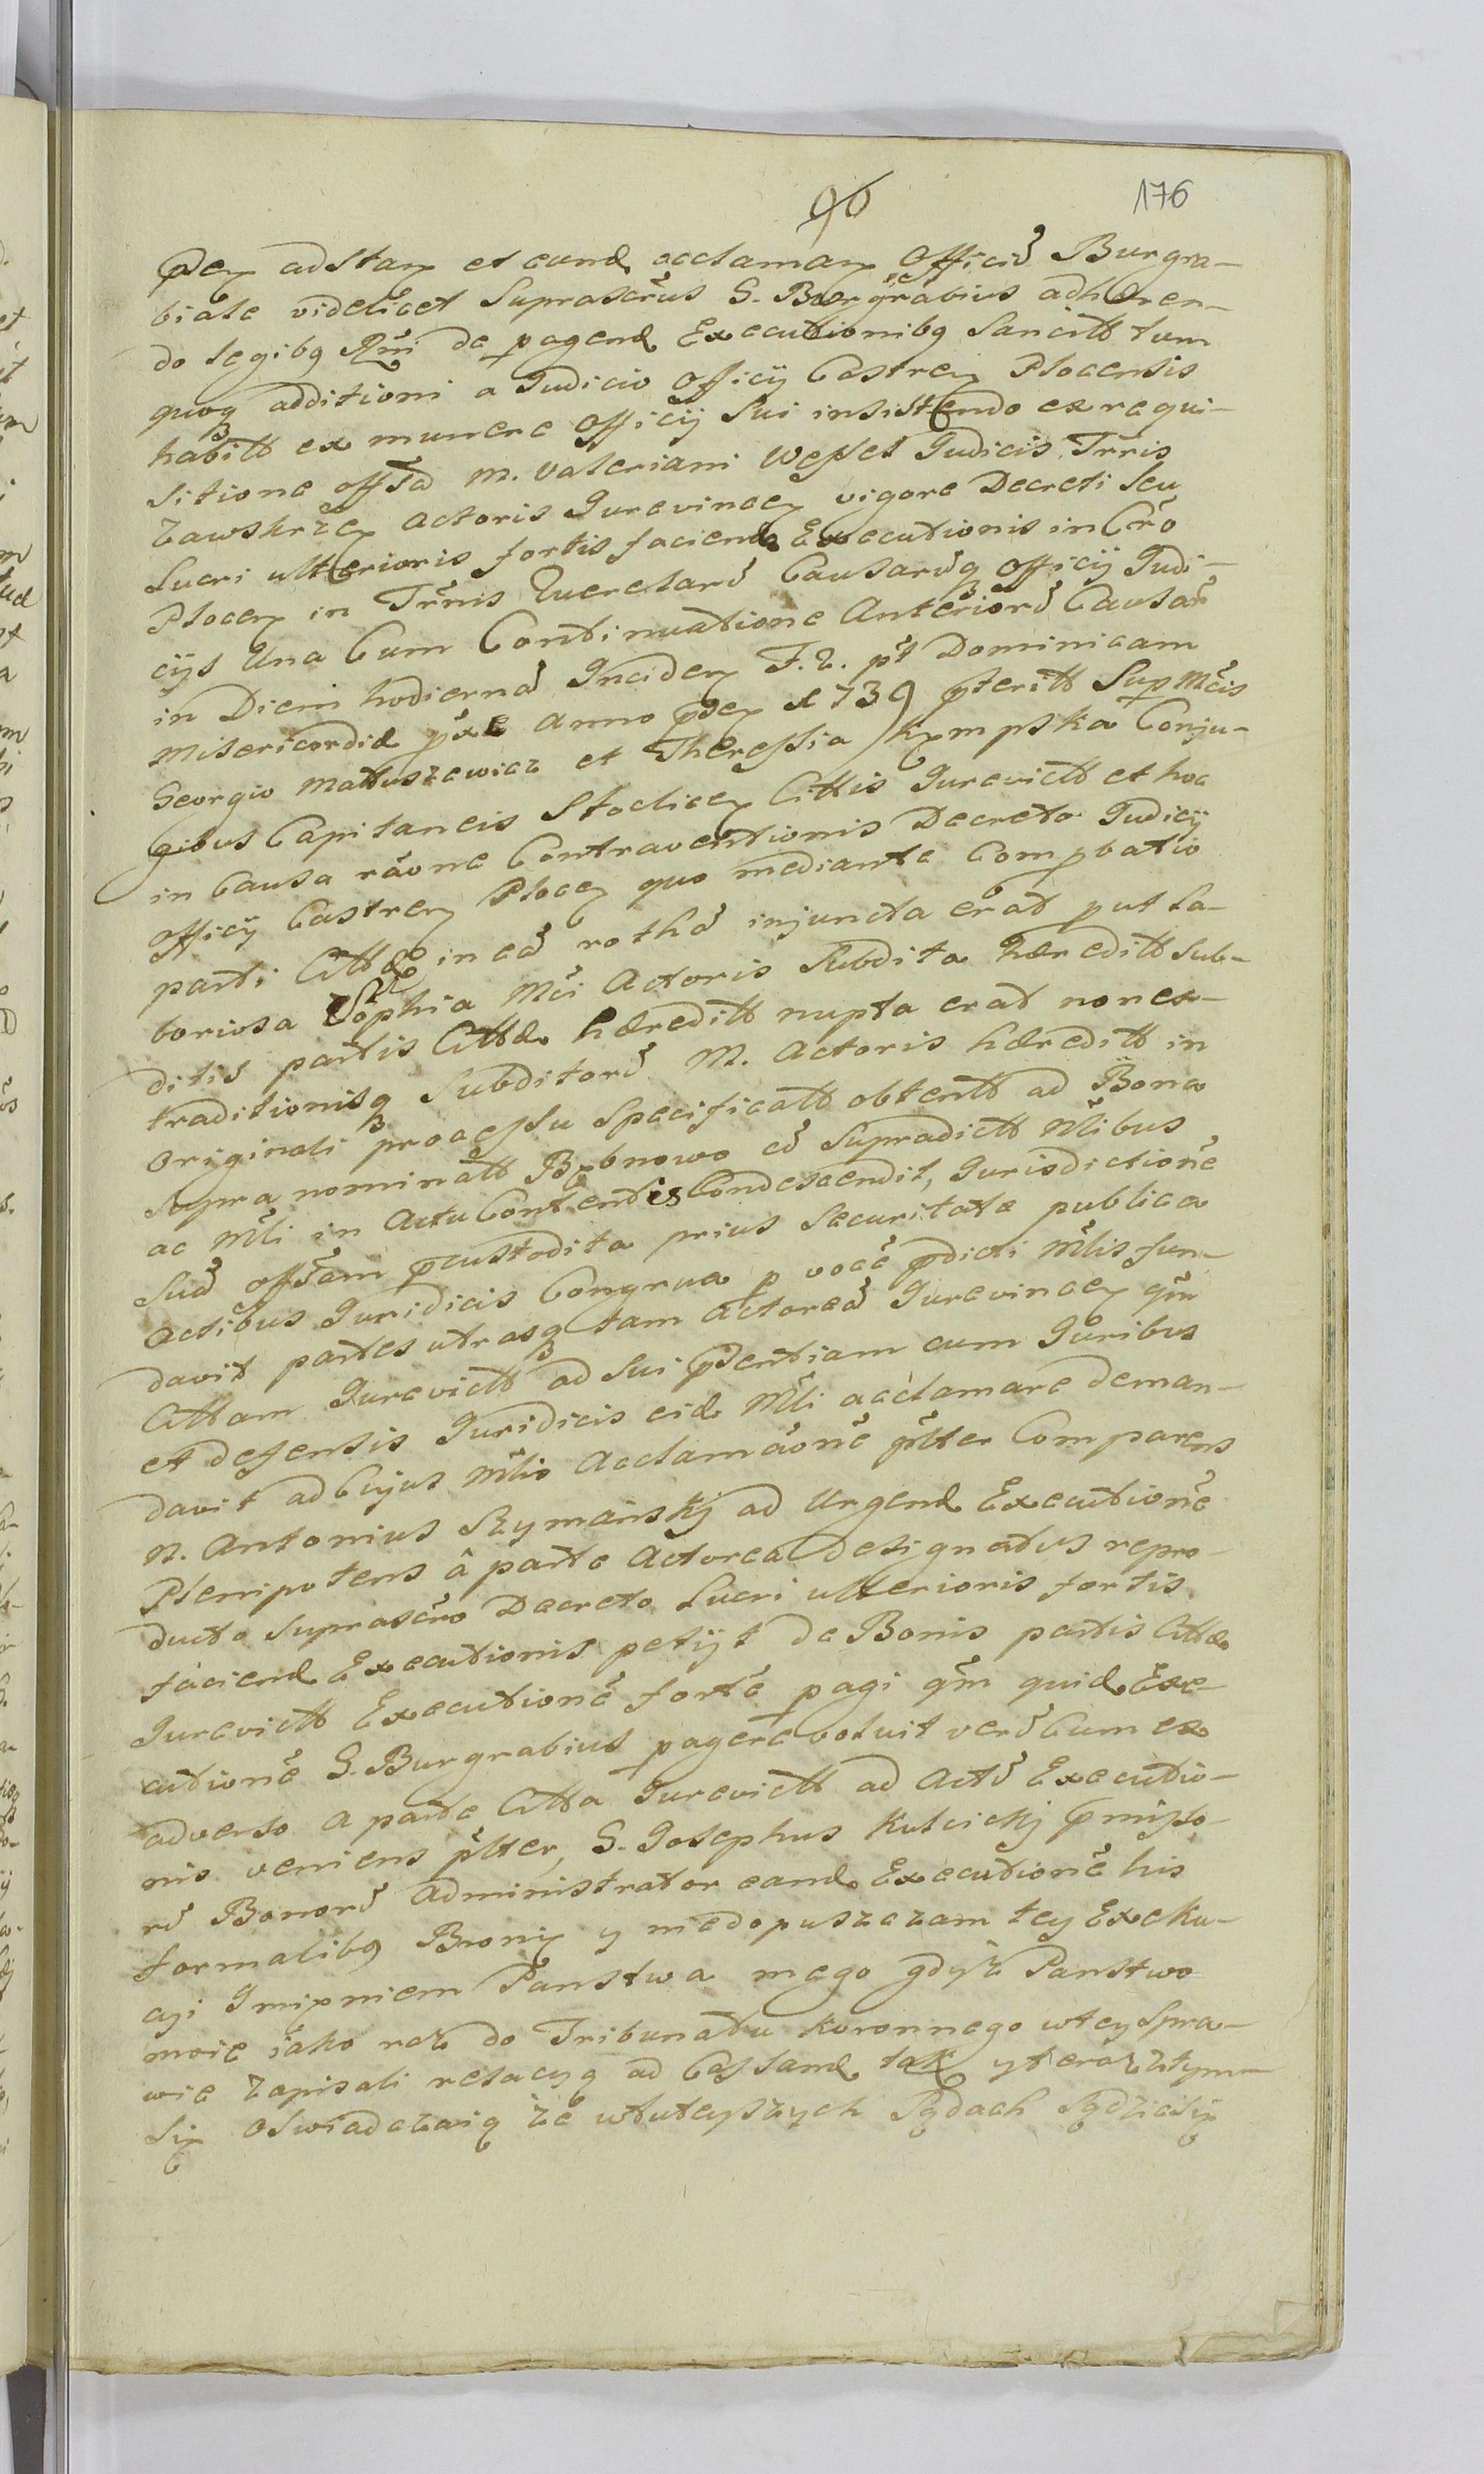 96 176
adstan et eund acclaman Officiũ Burgra-
biale videlicet Suprascrũs G. Burgrabius adhæren-
do legibq Rñi de pagend Executionibq Sancitt tum
quoq additioni a Judicio Officij Castren Plocensis
habitt ex munere Officij Sui insistendo ex requi-
sitione offtã M. Valeriani Wessel Judicis Trris
Zawskrzen Actoris Jurevincen vigore Decreti Seu
Lucri ulterioris fortis faciend Executionis in Crõ
Plocen in Trmis Querelarũ Causarũq Officij Judi-
cijs Una Cum Continuatione Anteriorũ Causar
in Diem hodiernã Inciden F. 2. pt Dominicam
Misericordiæ pxe Anno 1739 pteritt Sup Mcis
Georgio Mattuszewicz et Theressia Kempska Conju-
gibus Capitaneis Stoclicen Cittis Jurevictt et hoc
in Causa rãone Contraventionis Decreto Judicij
Officij Castren Plocen quo mediante Compbatio
parti Cittæ in eã rothã injuncta erat put La-
boriosa Sophia Mci Actoris Subdita hæreditt Sub-
ditis partis Cittæ hæreditt nupta erat non ex-
traditionisq Subditorũ M. Actoris hæreditt in
Originali processu Specificatt obtentt ad Bona
Supra nominatt Bębnowo cũ Supradictt Nlibus
ac Mli in Actu Contentis Condescendit, Jurisdictionẽ
Suã offsam pcustodita prius Securitate publica
Actibus Juridicis Congrua p vocẽ pdicti Mlis fun-
davit partes utrasq tam Actoreã Jurevincen qm
Cittam Jurevictt ad Sui pdentiam cum Juribus
et defensis Juridicis eid Mli acclamare deman-
davit ad Cujus Mlis Acclamãonẽ plter Comparens
N. Antonius Szymański ad Urgend Executionẽ
Plenipotens â parte Actorea designatus repro-
ducto Suprascrõ Decreto Lucri ulterioris fortis
faciend Executionis petijt de Bonis partis Cittæ
Jurevictt Executionẽ fortẽ pagi qm quid Exe-
cutionẽ G. Burgrabius pagere voluit verũ Cum ex
adverso a parte Citta Jurevictt ad Actũ Executio-
nis veniens plter, G. Josephus Kulcickj pmisso-
rũ Bonorũ Administrator eand Executionẽ his
formalibq Bronię y niedopuszczam tey Exeku-
cyi Jmięniem Panstwa mego gdysz Panstwo
moie iako raz do Tribunatu Koronnego wtey Spra-
wie zapisali relacyą ad Cassand tak yteraz ztym
Się Oswiadczaią że wtuteyszych Sądach Sądzic się